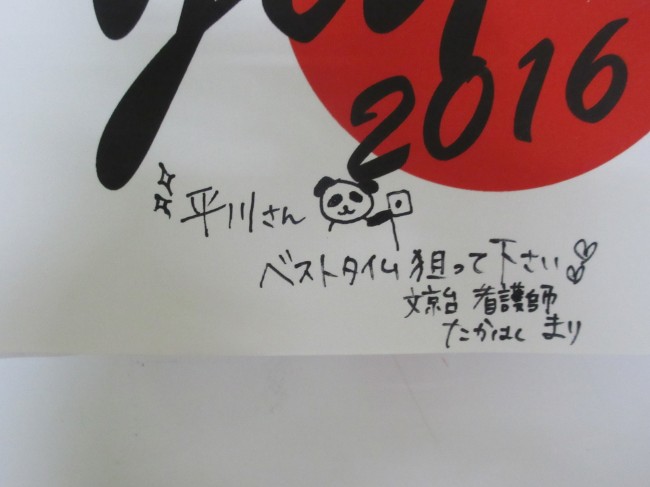 2016
平川さん
ベストタイム狙って下さい
文京台 看護師
たかはし まり